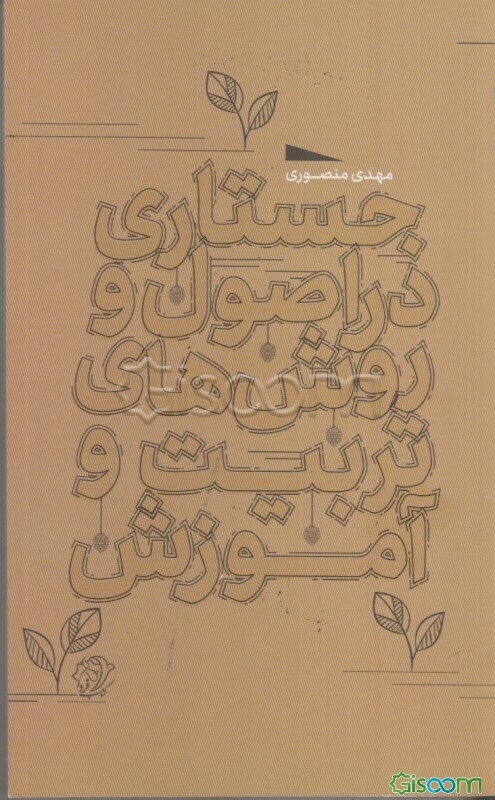 مهدی منصوری
جستاری
در اصول و
روش‌های
تربیت و
آموزش
Gisoom
Gisoom